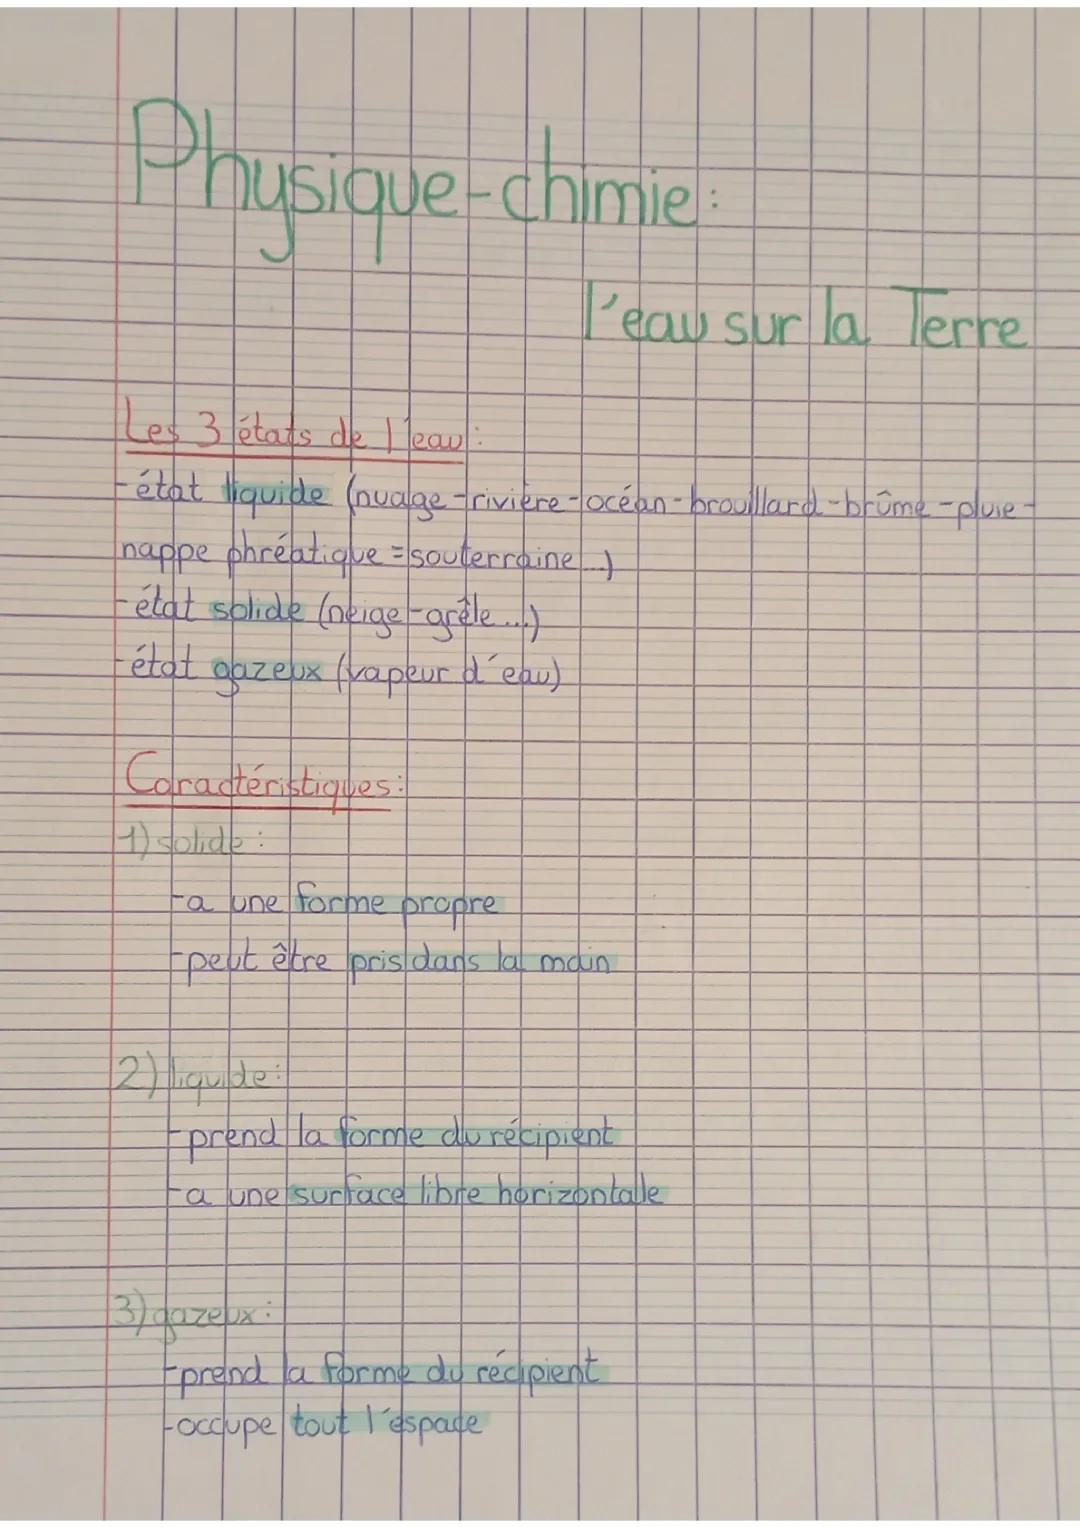 Physique-chimie:
l'eau sur la Terre
Les 3 états de l'eau:
-état liquide (nuage-rivière-océan-brouillard-brûme-pluie-
nappe phréatique = souterraine...)
-état solide (neige-grêle...)
-état gazeux (vapeur d'eau)
Caractéristiques:
1) solide:
-a une forme propre
-peut être pris dans la main
2) liquide:
-prend la forme du récipient
-a une surface libre horizontale
3) gazeux:
-prend la forme du récipient
-occupe tout l'espace